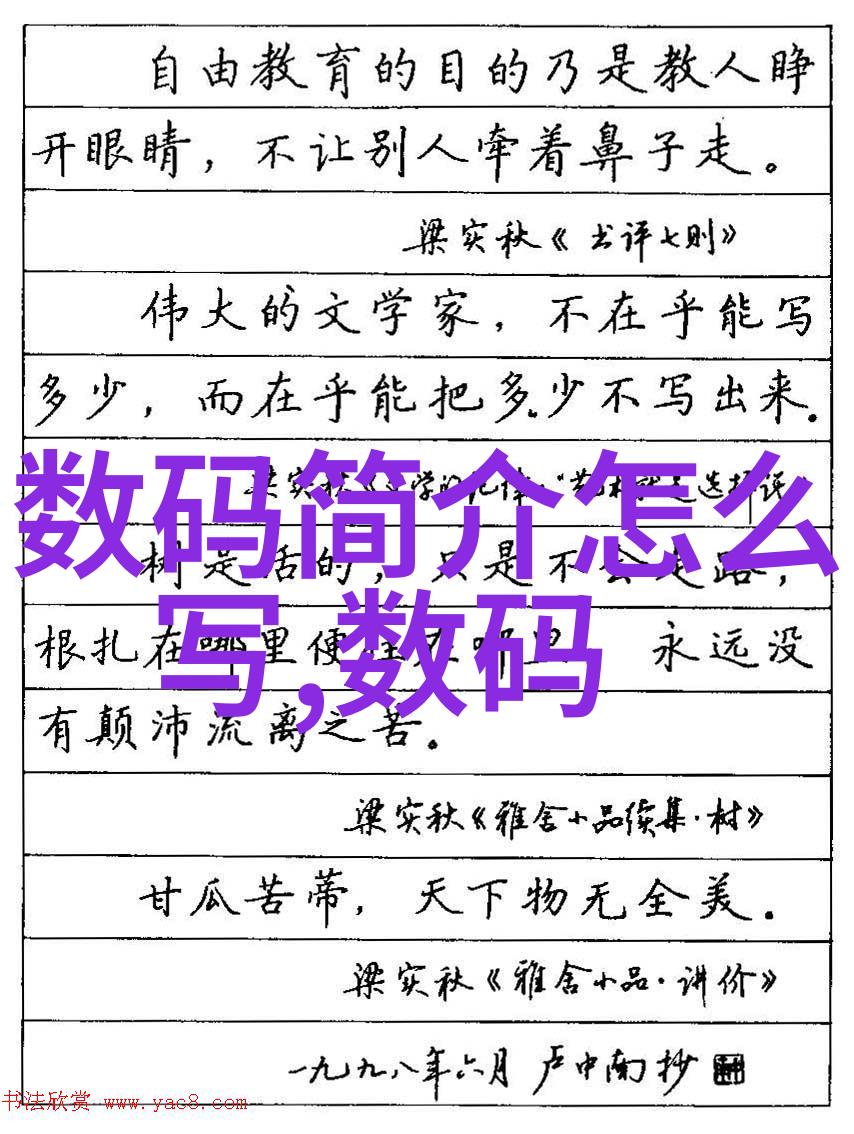 自由教育的目的乃是教人睁
开眼睛，不让别人牵着鼻子走。
梁实秋《书评七则》
伟大的文学家，不在乎能写
多少，而在乎能把多少不写出来。
数码简介怎么
写,数码
树是活的，只是不会走路，
根扎在哪里便住在哪里 永远没
有颠沛流离之苦。
梁实秋《雅舍小品续集·树》
甘瓜苦蒂，天下物无全美。
梁实秋《雅舍小品·讲价》
一九九八年六月 卢中南抄
书法欣赏 www.yac8.com